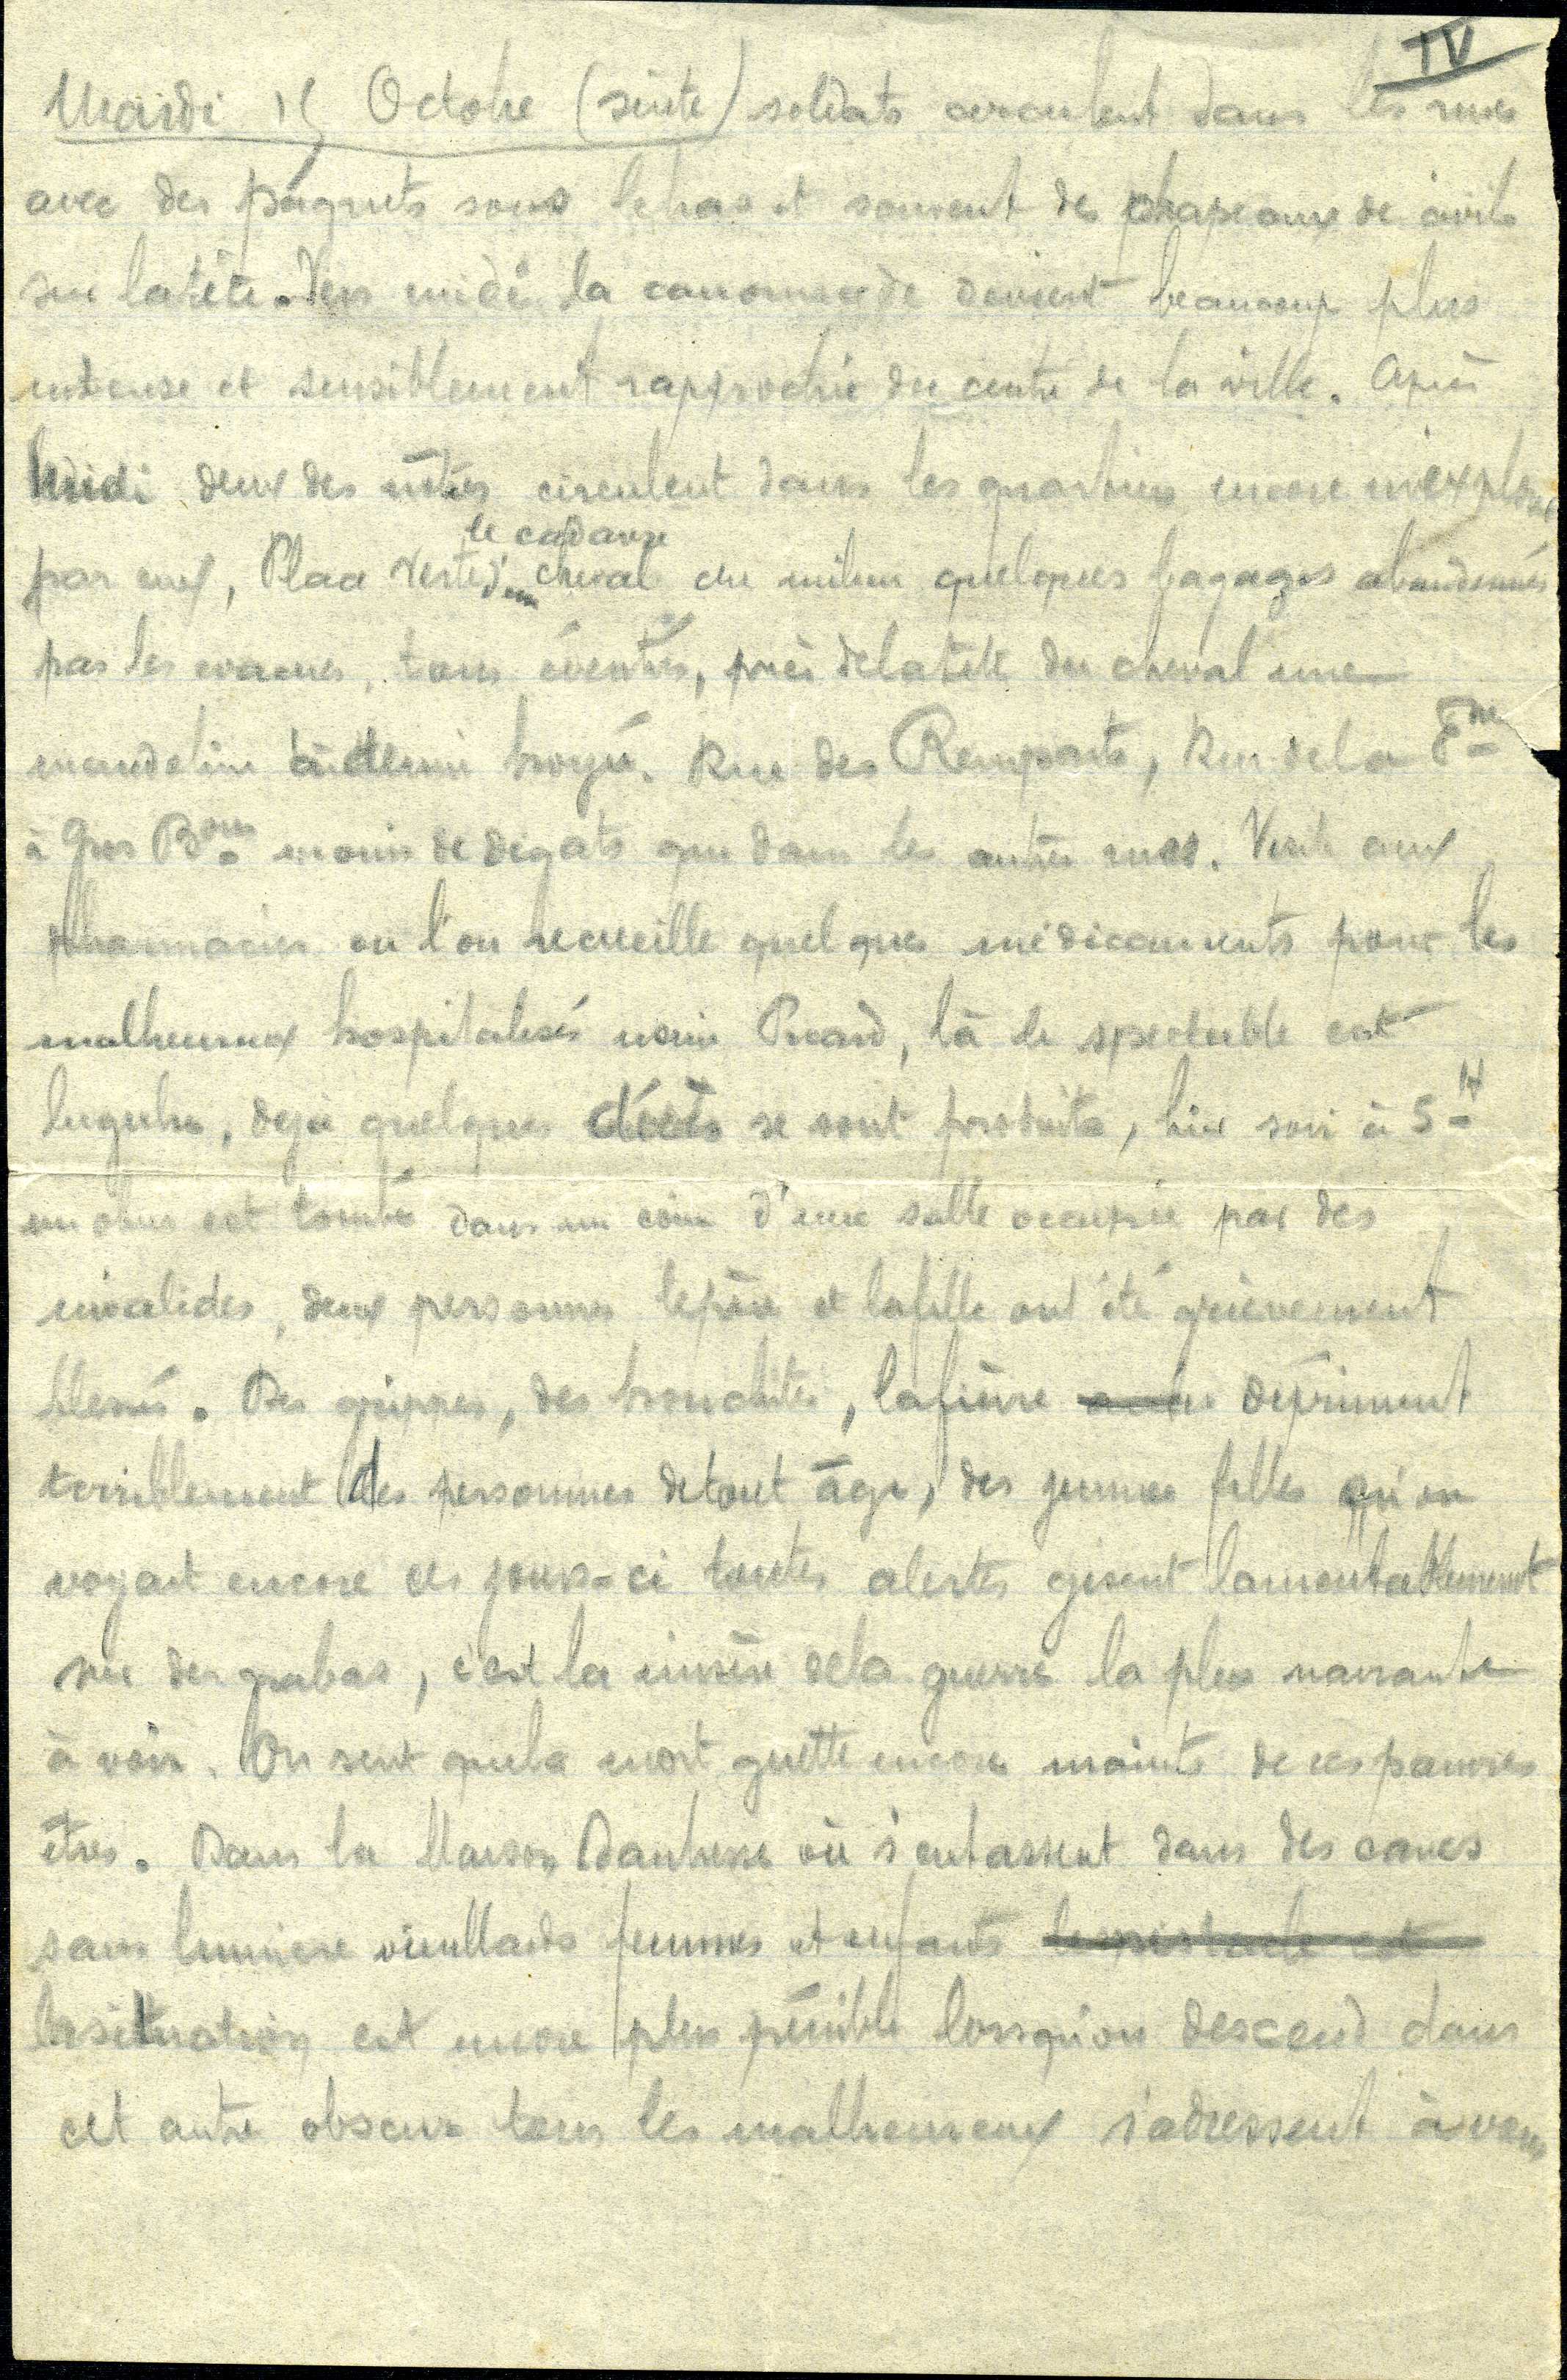 IV
Mardi 15 Octobre (suite) soldats circulent dans les rues
avec des paquets sous le bras et souvent des chapeaux de civils
sur la tête. Vers midi la canonnade devient beaucoup plus
intense et sensiblement rapprochée du centre de la ville. Après
Midi deux des nôtres circulent dans les quartiers encore inexplorés
par eux, Place Verte le cadavre d'un cheval au milieu quelques bagages abandonnés
par les évacués, tous éventrés, près de la tête du cheval une
mandoline à demi broyée. Rue des Remparts, Rue de la
à Gros moins de dégats que dans les autres rues. Visite aux
pharmacies ou l'on recueille quelques médicaments pour les
malheureux hospitalisés usine Picard, là le spectacle est
lugubre, déjà quelques décès se sont produits, hier soir à 5 H
un obus est tombé dans un coin d'une salle occupée par des
invalides, deux personnes le père et la fille ont été grièvement
blessés. Des grippes, des bronchites, la fièvre dépriment
terriblement des personnes de tout âge, des jeunes filles qu'on
voyait encore ces jours-ci toutes alertes gisent lamentablement
sur des grabas, c'est la misère de la guerre la plus navrante
à voir. On sent que la mort guette encore maints de ces pauvres
êtres. Dans la Maison où s'entassent dans des caves
sans lumiere vieillards femmes et enfants le spectacle est
la situation est encore plus pénible lorsqu'on descend dans
cet antre obscur tous les malheureux s'adressent à vous